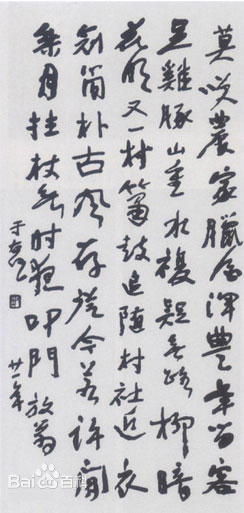 莫咲農家臘酒渾豐年留客
足雞豚山重水複疑無路柳暗
花明又一村簫鼓追隨村社近衣
冠簡朴古風存從今若許閑
乘月拄杖無时夜叩門放翁
于右任
廿一年
Baidu百科